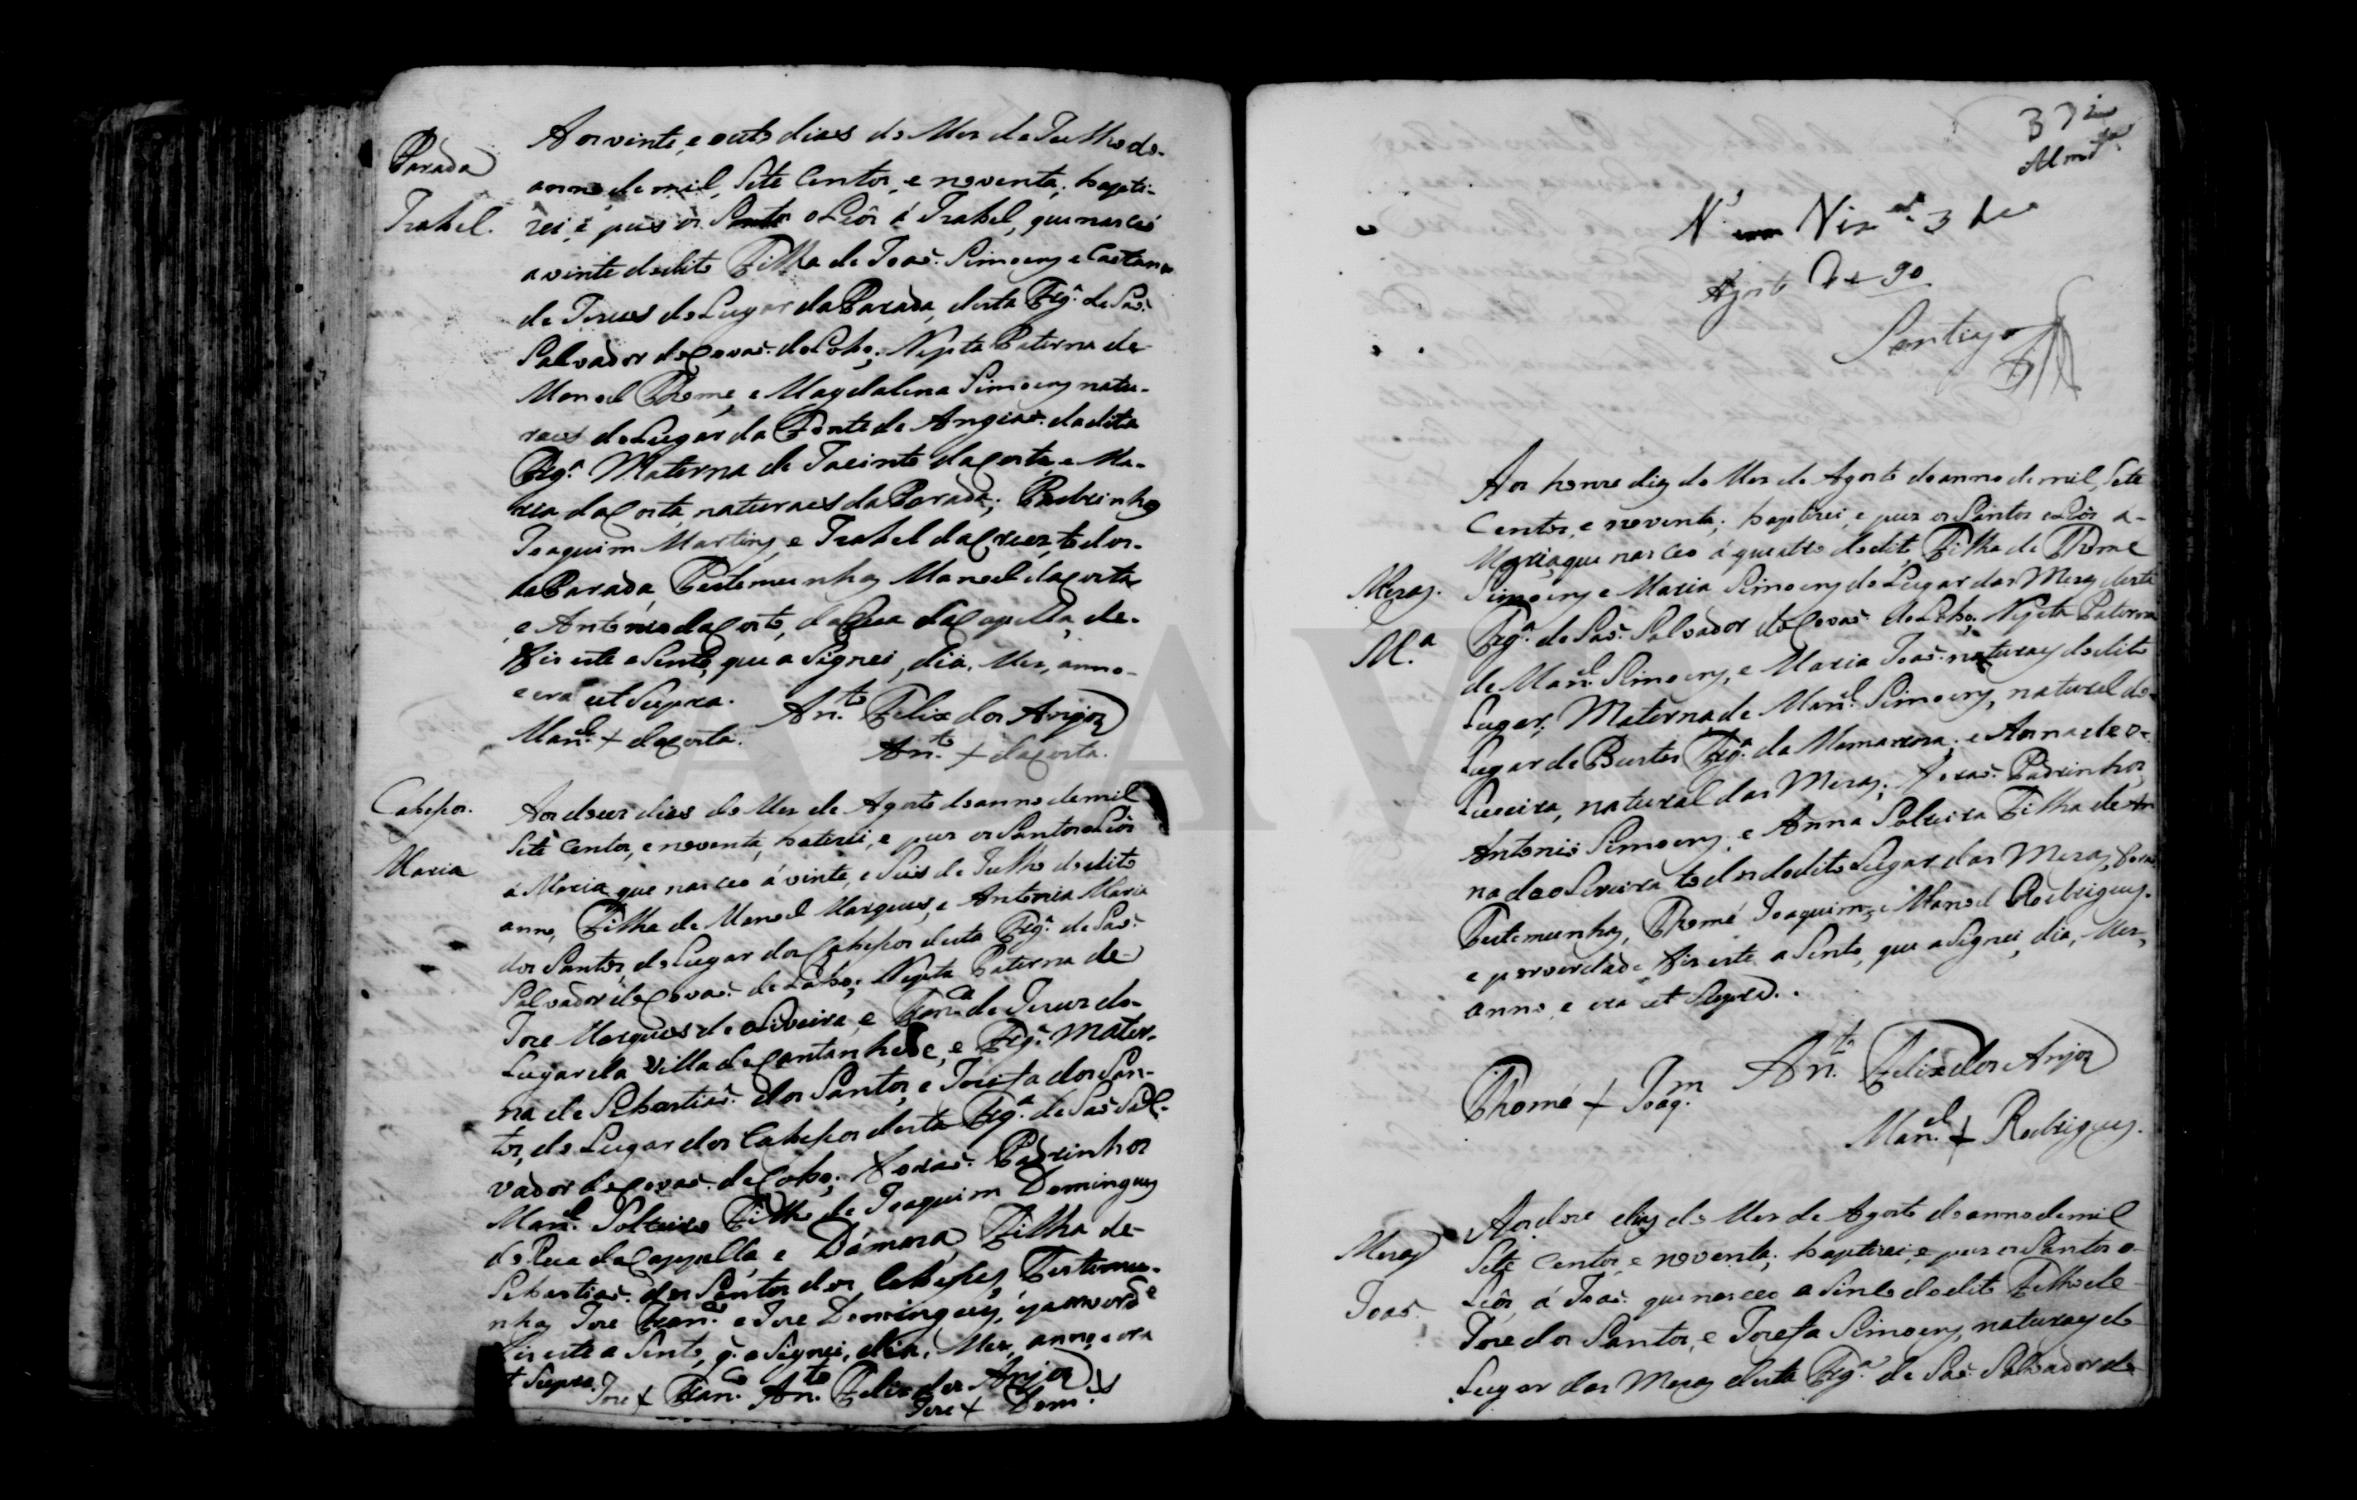 Parada
Izabel.
Aos vinte, e outo dias do Mes de Julho do-
anno de mil, Sete Centos, e noventa, bapti-
zei, e pus os Santos oLeos á Izabel, que nasceo
a vinte do dito Filha de Joaõ. Simoens e Caetana
de Jesus do Lugar da Parada, desta Frg.ª de Saõ.
Salvador de Covaõ. do Lobo; Nepta Paterna de
Manoel Thomé, e Magdalena Simoens natu-
raes do Lugar da Fonte de Angiaõ. da dita
Frg.ª Materna de Jacinto da Costa, e Ma-
ria da Costa, naturaes da Parada; Padrinhos
Joaquim Martins, e Izabel da Cruz, todos-
da Parada, Testemunhas Manoel da Costa
e Antonio da Costa, da Rua da Capella, de-
fis este aSento, que aSignei, dia, Mes, anno-
e era ut Supra.
An.to Felix dos Anjos
Man.el + da Costa.
An.to + da Costa.
Cabeços.
Maria
Aos deus dias do Mes de Agosto do anno de mil
Sete Centos, e noventa, batizei, e pus os Santos oLeos
a Maria que nasceo á vinte, e Seis de Julho do dito
anno, Filha de Manoel Marques, e Antonia Maria
dos Santos, do Lugar dos Cabeços desta Frg.ª de Saõ.
Salvador de Covaõ. do Lobo; Nepta Paterna de
Joze Marques de oLiveira e Fran.ca de Jesus do-
Lugar da Villa de Cantanhede, e Frg.ª Mater-
na de Sebastiaõ. dos Santos, e Josefa dos San-
tos, do Lugar dos Cabeços desta Frg.ª de Saõ Sal-
vador de Covaõ. do Lobo; foraõ. Padrinhos
Man.el Solteiro Filho de Joaquim Domingues
da Rua da Cappella, e Dámaza, Filha de-
Sebastiaõ. dos Santos dos Cabeços, Testemu-
nhas Joze Fran.co e Joze Domingues, e por verd.e
fis este aSento, q. aSignei, dia, Mes, anno, e era
ut Supra.
Joze + Fran.co An.to Felix dos Anjos
Joze + Dom.es
37
Alm.da
N. Viz.am 3 de
Agosto de 90
Santiago
Mesas.
M.ª
Aos honze dias do Mes de Agosto do anno de mil, Sete
Centos, e noventa; baptizei, e pus os Santos oLeos a-
Maria, que nasceo á quatro do dito, Filha de Thome
Simoens e Maria Simoens do Lugar das Mesas desta
Frg.ª de Saõ. Salvador de Covaõ. do Lobo, Nepta Paterna
de Man.el Simoens, e Maria Joaõ. naturaes do dito
Lugar; Materna de Man.el Simoens, natural do-
Lugar de Bustos Frg.ª da Mamarosa; e Anna de o-
Liveira, natural das Mesas; foraõ. Padrinhos
Antonio Simoens, e Anna Solteira Filha de An
na de oLiveira todos do dito Lugar das Mesas, foraõ
Testemunhas, Thomé Joaquim, e Manoel Rodrigues.
e por verdade fis este aSento, que aSignei, dia, Mes,
anno, e era ut Supra.
An.to Felix dos Anjos
Thomé + Joaq.m
Man.el + Rodrigues.
Mesas
Joaõ.
Aos doze dias do Mes de Agosto do anno de mil
Sete Centos, e noventa; baptizei, e pus os Santos o-
Leos, á Joaõ. que nasceo a Sinco do dito Filho de
Joze dos Santos, e Josefa Simoens, naturaes do
Lugar das Mesas desta Frg.ª de Saõ. Salvador de